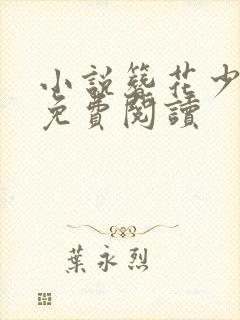 小說簪花少
免費閱讀
葉永烈